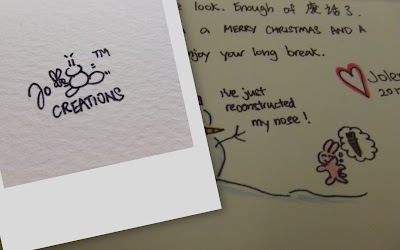 Jo
TM
CREATIONS
look. Enough of
a MERRY CHRISTMAS AND A
your long break.
I've just
reconstructed
my nose!